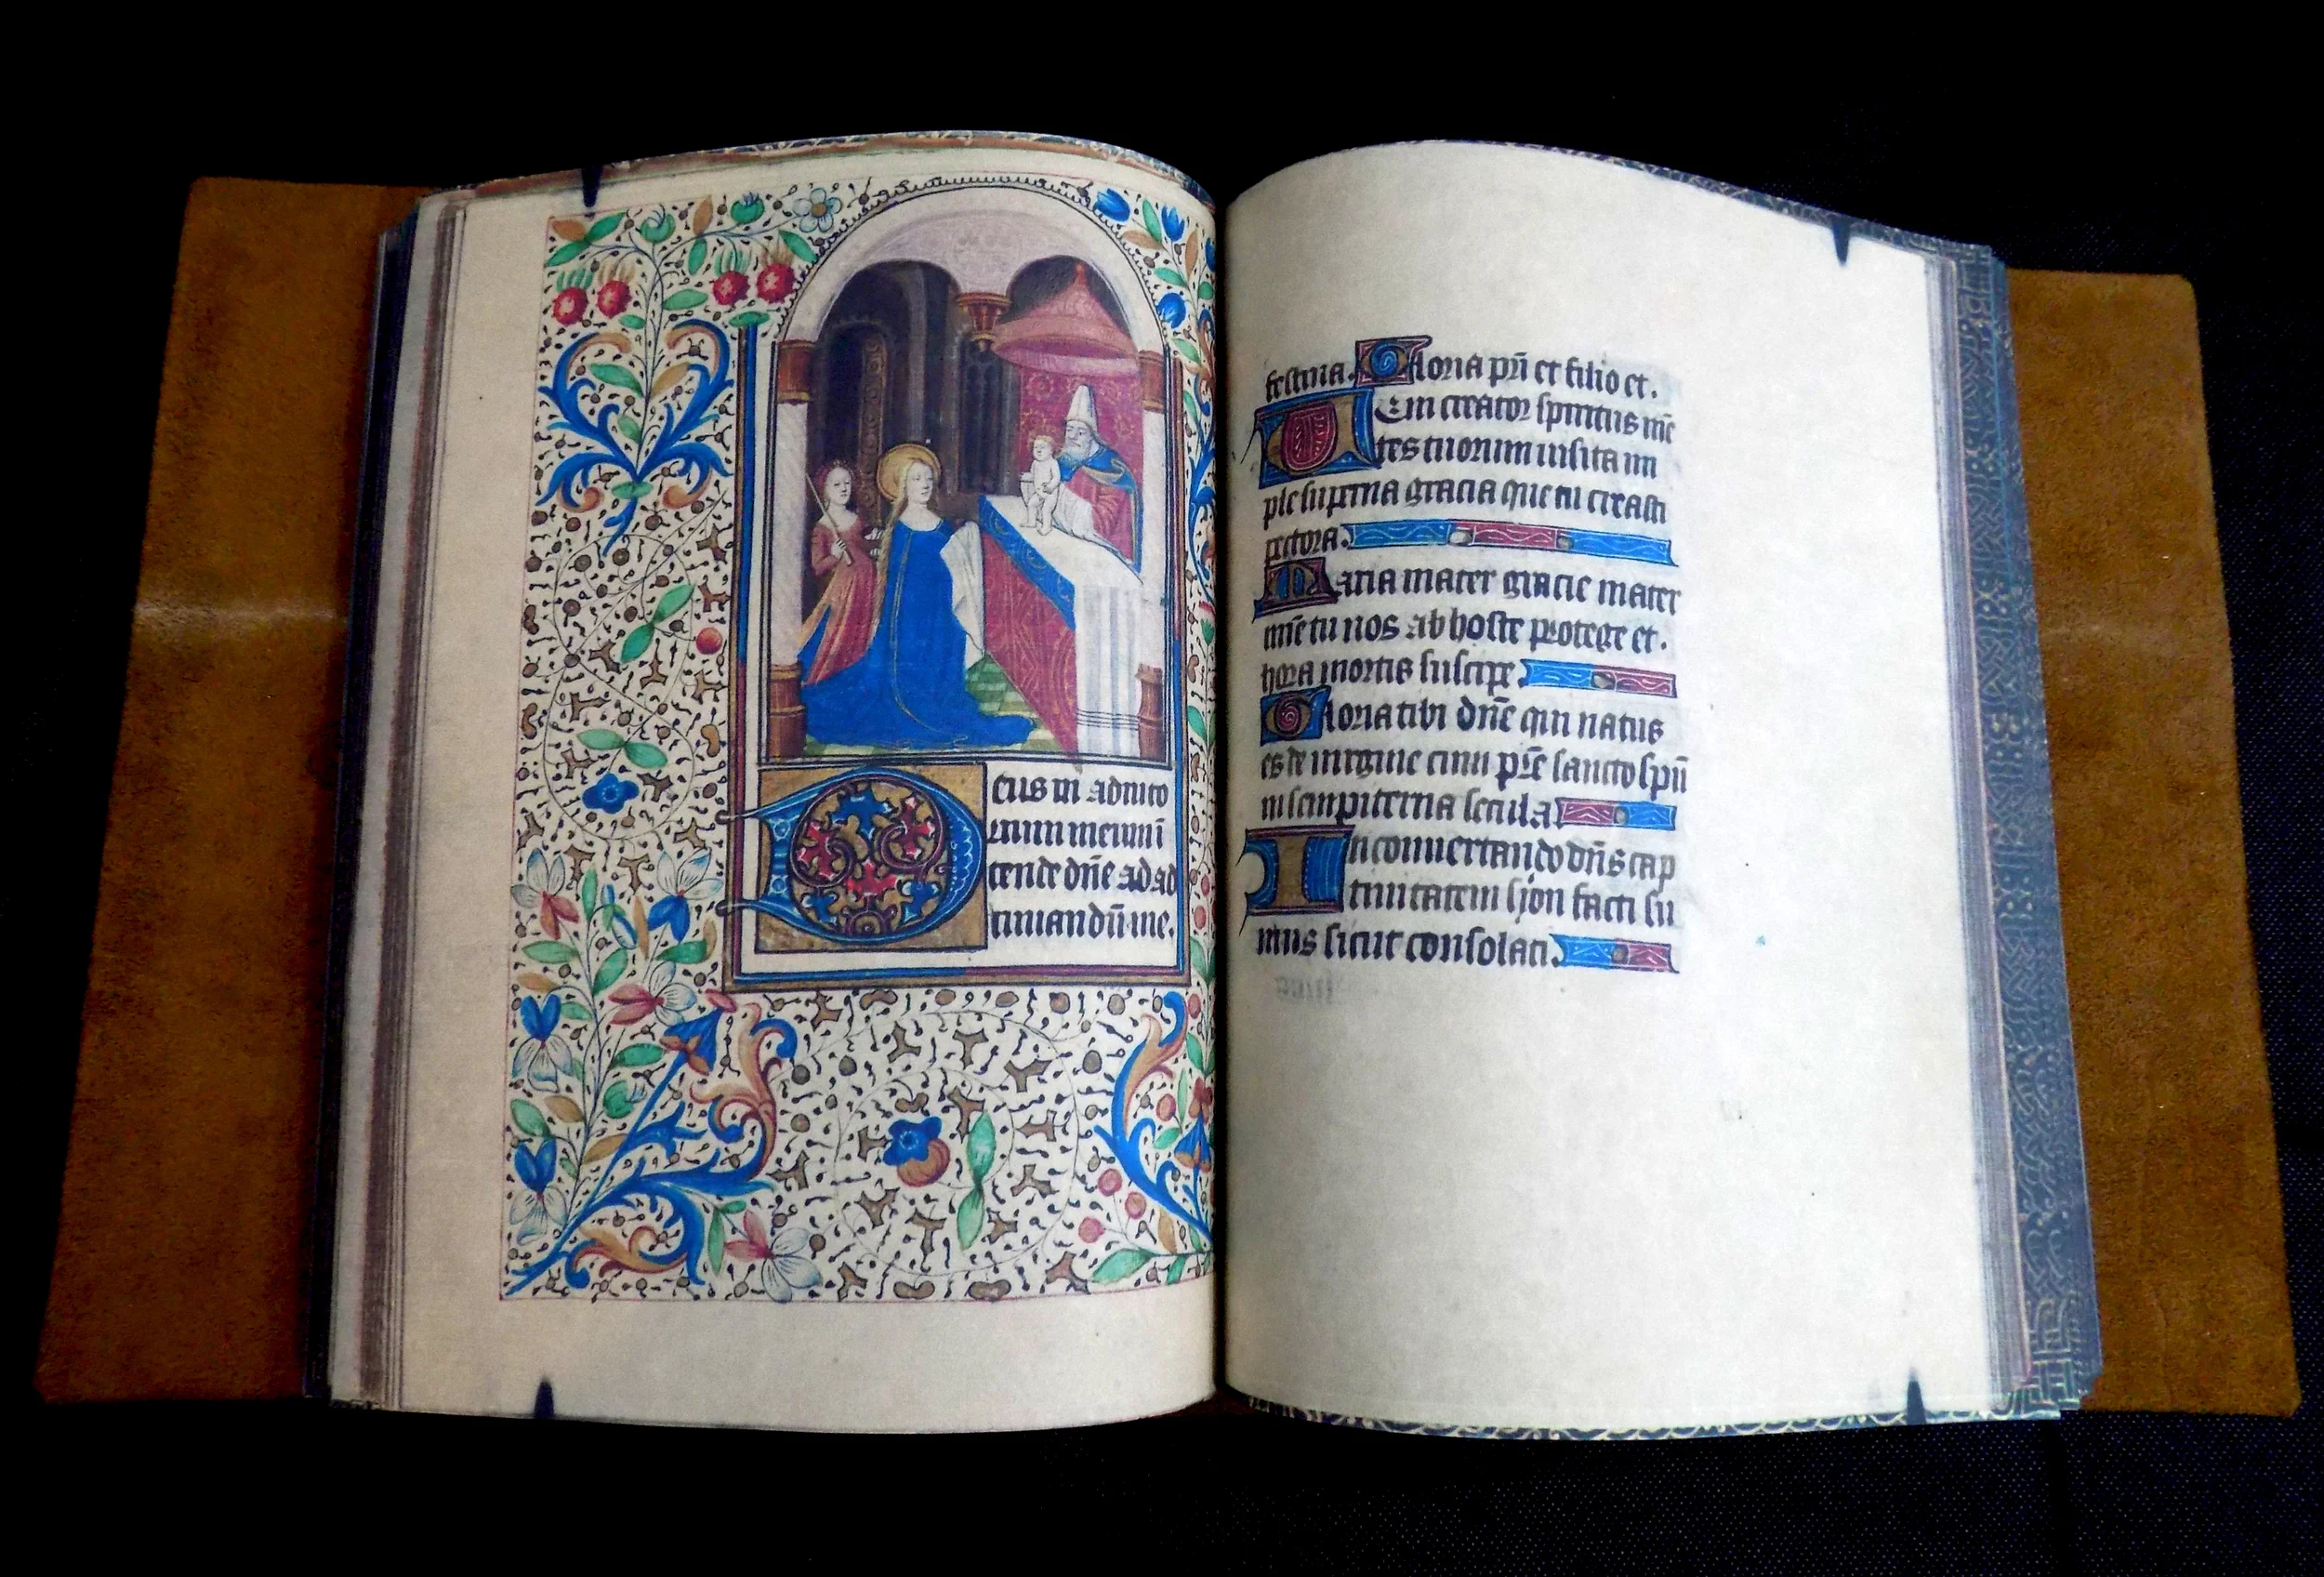 Deus in adiuto
rium meum ī
tende dn̄e ad ad
iuuandū me.
festina. Gloria pr̄i et filio et.
Ueni creator spiritus mē
tes tuorum uisita im
ple superna gracia que tu creasti
pectora.
Maria mater gracie mater
mīe tu nos ab hoste protege et.
hora mortis suscipe
Gloria tibi dn̄e qui natus
es de uirgine cum pr̄e sancto spū
in sempiterna secula
In conuertendo dn̄s cap
tiuitatem syon facti su
mus sicut consolati.